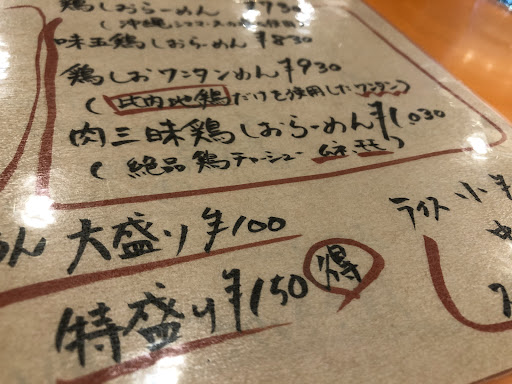 鶏しおらーめん ¥730
(沖縄シママースのみ使用)
味玉鶏しおらーめん ¥830
鶏しおワンタンめん ¥930
(比内地鶏だけを使用したワンタン)
肉三昧鶏しおらーめん ¥1.030
(絶品鶏チャーシュー ムネ.モモ)
めん 大盛り ¥100
特盛り ¥150 得
ライス 小 ¥